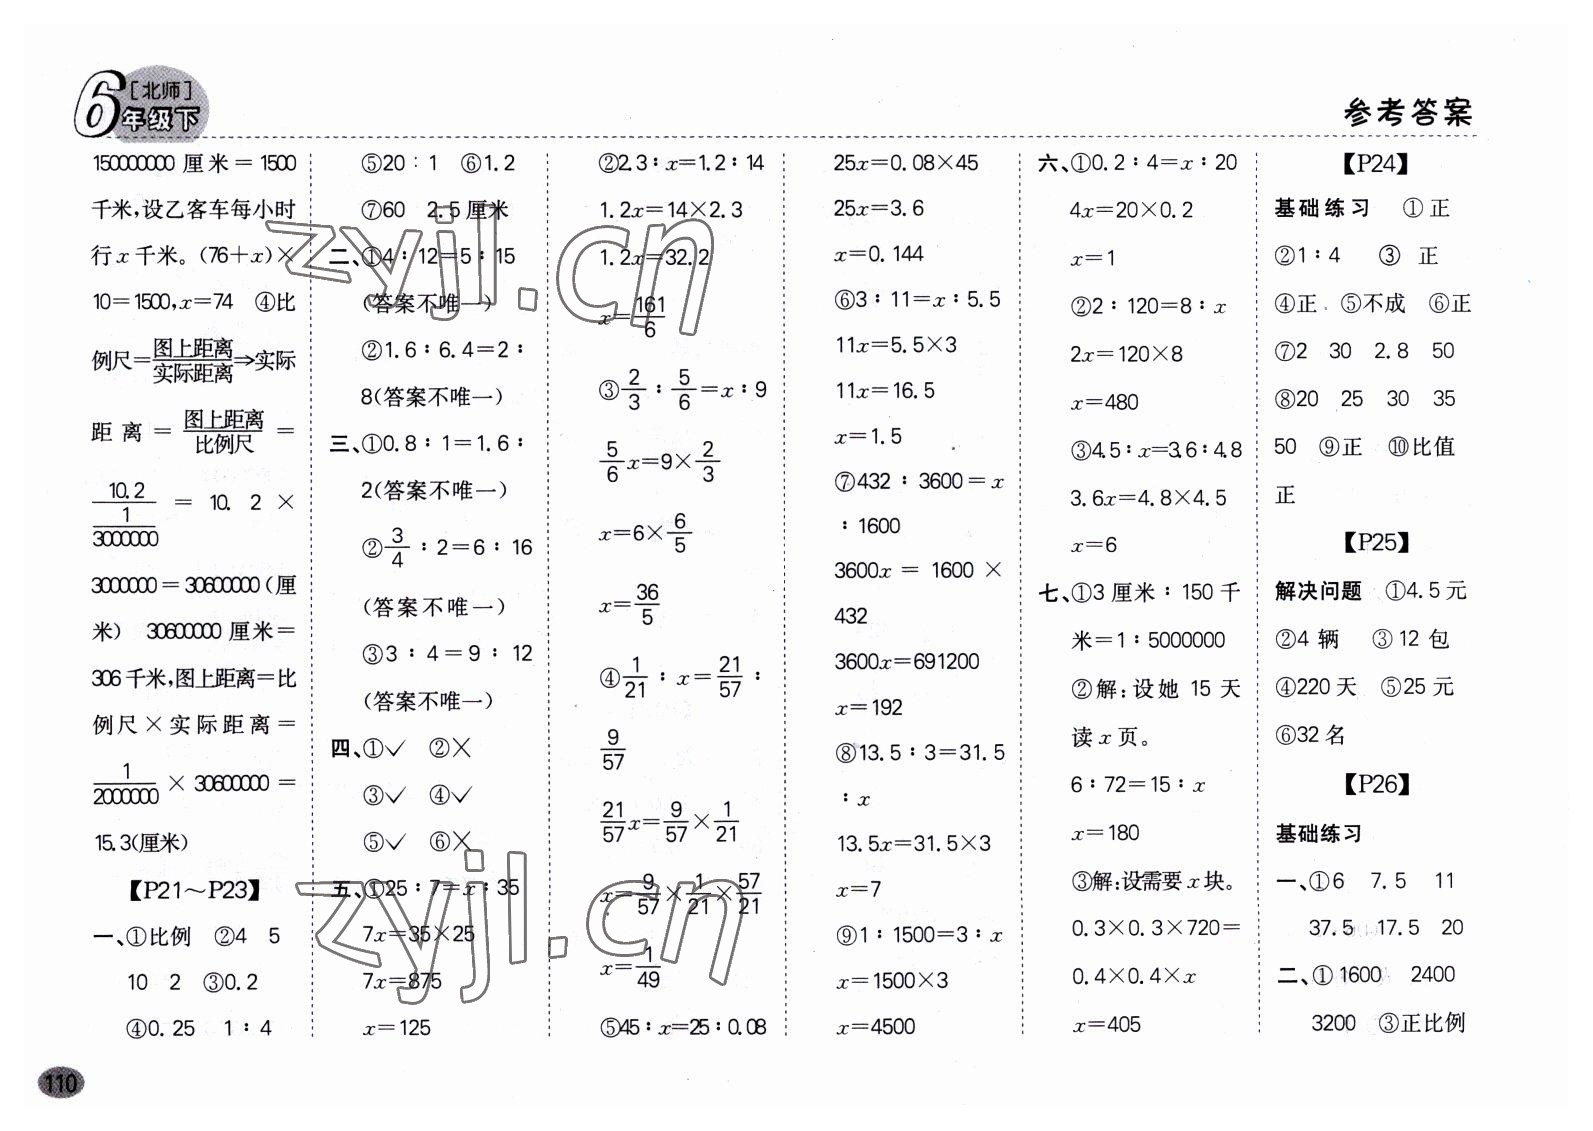 6[北师]
年级下
参考答案
150000000厘米=1500
千米,设乙客车每小时
行x千米。(76+x)×
10=1500,x=74 ④比
例尺=图上距离/实际距离⇒实际
距离=图上距离/比例尺=
10.2/(1/3000000)=10.2×
3000000=30600000(厘
米) 30600000厘米=
306千米,图上距离=比
例尺×实际距离=
1/2000000×30600000=
15.3(厘米)
【P21～P23】
一、①比例 ②4 5
10 2 ③0.2
④0.25 1∶4
⑤20∶1 ⑥1.2
⑦60 2.5厘米
二、①4∶12=5∶15
(答案不唯一)
②1.6∶6.4=2∶
8(答案不唯一)
三、①0.8∶1=1.6∶
2(答案不唯一)
②3/4∶2=6∶16
(答案不唯一)
③3∶4=9∶12
(答案不唯一)
四、①✓ ②×
③✓ ④✓
⑤✓ ⑥×
五、①25∶7=x∶35
7x=35×25
7x=875
x=125
②2.3∶x=1.2∶14
1.2x=14×2.3
1.2x=32.2
x=161/6
③2/3∶5/6=x∶9
5/6x=9×2/3
x=6×6/5
x=36/5
④1/21∶x=21/57∶
9/57
21/57x=9/57×1/21
x=9/57×1/21×57/21
x=1/49
⑤45∶x=25∶0.08
25x=0.08×45
25x=3.6
x=0.144
⑥3∶11=x∶5.5
11x=5.5×3
11x=16.5
x=1.5
⑦432∶3600=x
∶1600
3600x=1600×
432
3600x=691200
x=192
⑧13.5∶3=31.5
∶x
13.5x=31.5×3
x=7
⑨1∶1500=3∶x
x=1500×3
x=4500
六、①0.2∶4=x∶20
4x=20×0.2
x=1
②2∶120=8∶x
2x=120×8
x=480
③4.5∶x=3.6∶4.8
3.6x=4.8×4.5
x=6
七、①3厘米∶150千
米=1∶5000000
②解:设她15天
读x页。
6∶72=15∶x
x=180
③解:设需要x块。
0.3×0.3×720=
0.4×0.4×x
x=405
【P24】
基础练习 ①正
②1∶4 ③正
④正 ⑤不成 ⑥正
⑦2 30 2.8 50
⑧20 25 30 35
50 ⑨正 ⑩比值
正
【P25】
解决问题 ①4.5元
②4辆 ③12包
④220天 ⑤25元
⑥32名
【P26】
基础练习
一、①6 7.5 11
37.5 17.5 20
二、①1600 2400
3200 ③正比例
110
zyjl.cn
zyjl.cn